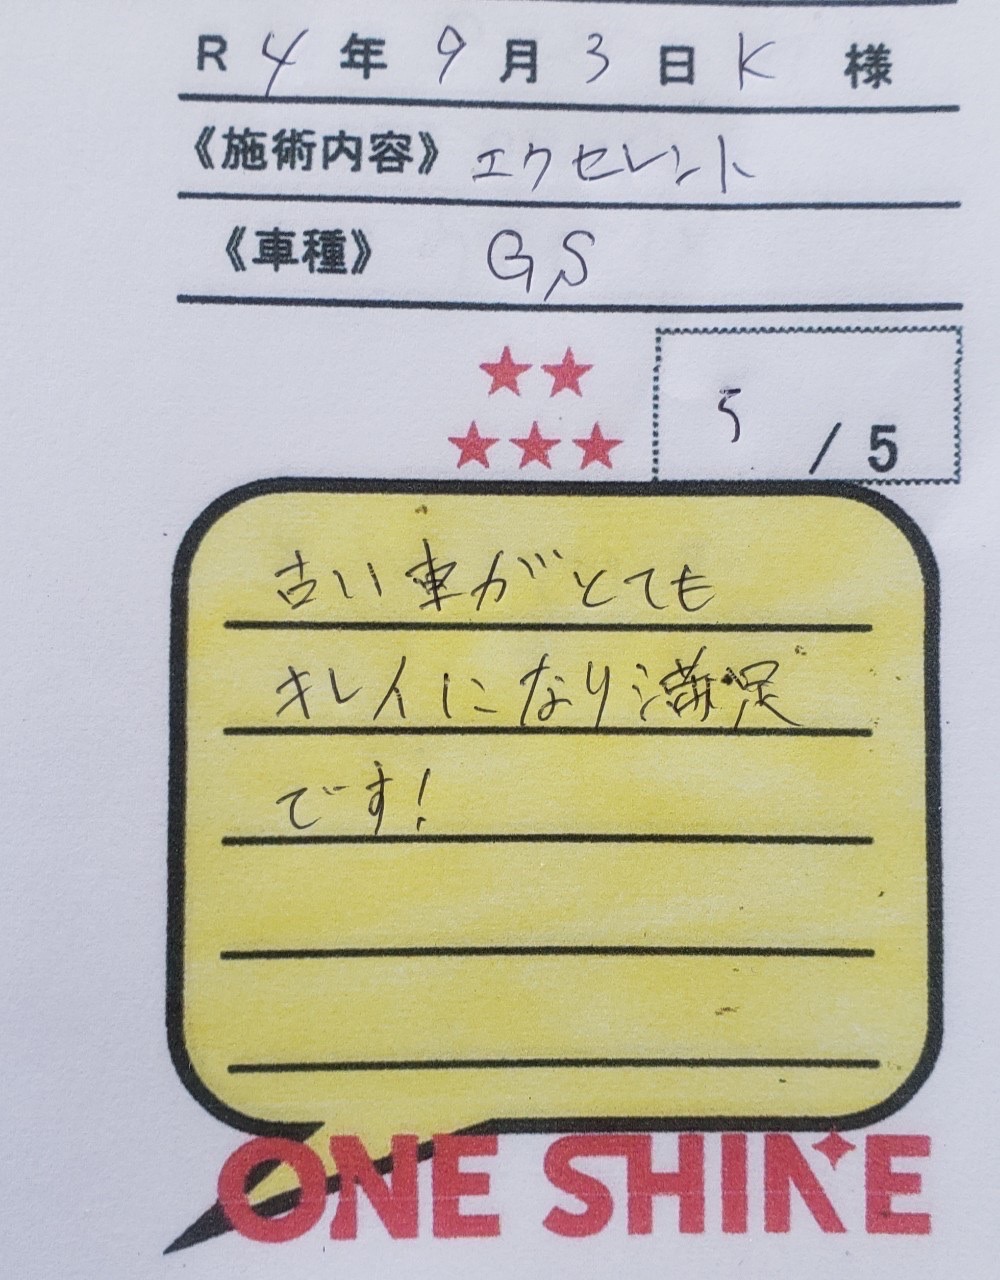 R 4 年 9 月 3 日 K 様
《施術内容》 エクセレント
《車種》 GS
5 / 5
古い車がとても
キレイになり満足
です!
ONE SHINE